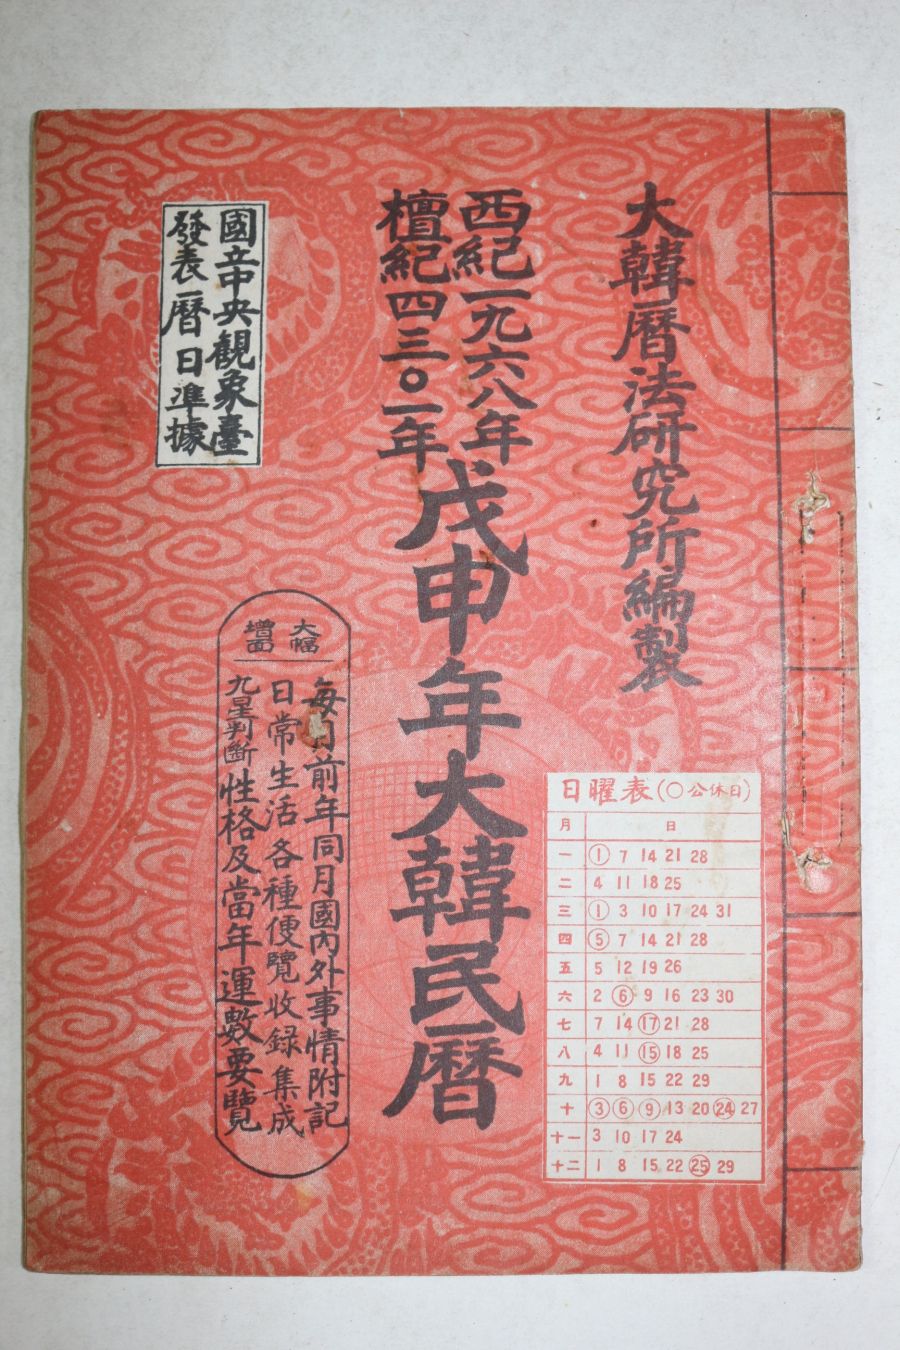 大韓曆法硏究所編製
西紀一九六八年
檀紀四三〇一年
戊申年大韓民曆
國立中央観象臺
發表曆日準據
大幅
增面
每月前年同月國內外事情附記
日常生活各種便覽收録集成
九星判斷性格及當年運數要覽
日曜表(○公休日)
月 日
一 ① 7 14 21 28
二 4 11 18 25
三 ① 3 10 17 24 31
四 ⑤ 7 14 21 28
五 5 12 19 26
六 2 ⑥ 9 16 23 30
七 7 14 ⑰ 21 28
八 4 11 ⑮ 18 25
九 1 8 15 22 29
十 ③ ⑥ ⑨ 13 20 ㉔ 27
十一 3 10 17 24
十二 1 8 15 22 ㉕ 29